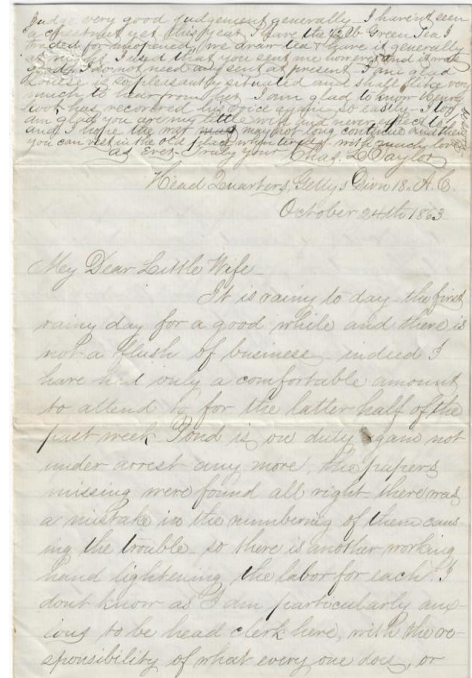 Judge very good judgement generally I havent seen
a chestnut yet this year. I gave the lb Green Tea I
traded for a popenesy we draw tea & have it generally
at night I used that you sent me however and it was
good. I do not need any sent at present I am glad
is so pleasantly situated and shall like very
much to hear from her. I am glad to know Henry
has recovered his voice again at least. I
am glad you are my little wife and never expect
and I hope the war may not long continue and then
you can rest in the old place with much love
As Ever Truly your Chas. L. Taylor
Head Quarters, Gettys Divn 18. A. C.
October 24th 1863
My Dear Little Wife
It is rainy to day the first
rainy day for a good while and there is
not a flush of business indeed I
have had only a comfortable amount
to attend to for the latter half of the
past week Pond is on duty again not
under arrest any more, the papers
missing were found all right there was
a mistake in the numbering of them caus
ing the trouble so there is another working
hand lightening the labor for each. I
dont know as I am particularly anx
ious to be head clerk here, with the re-
sponsibility of what every one does, or